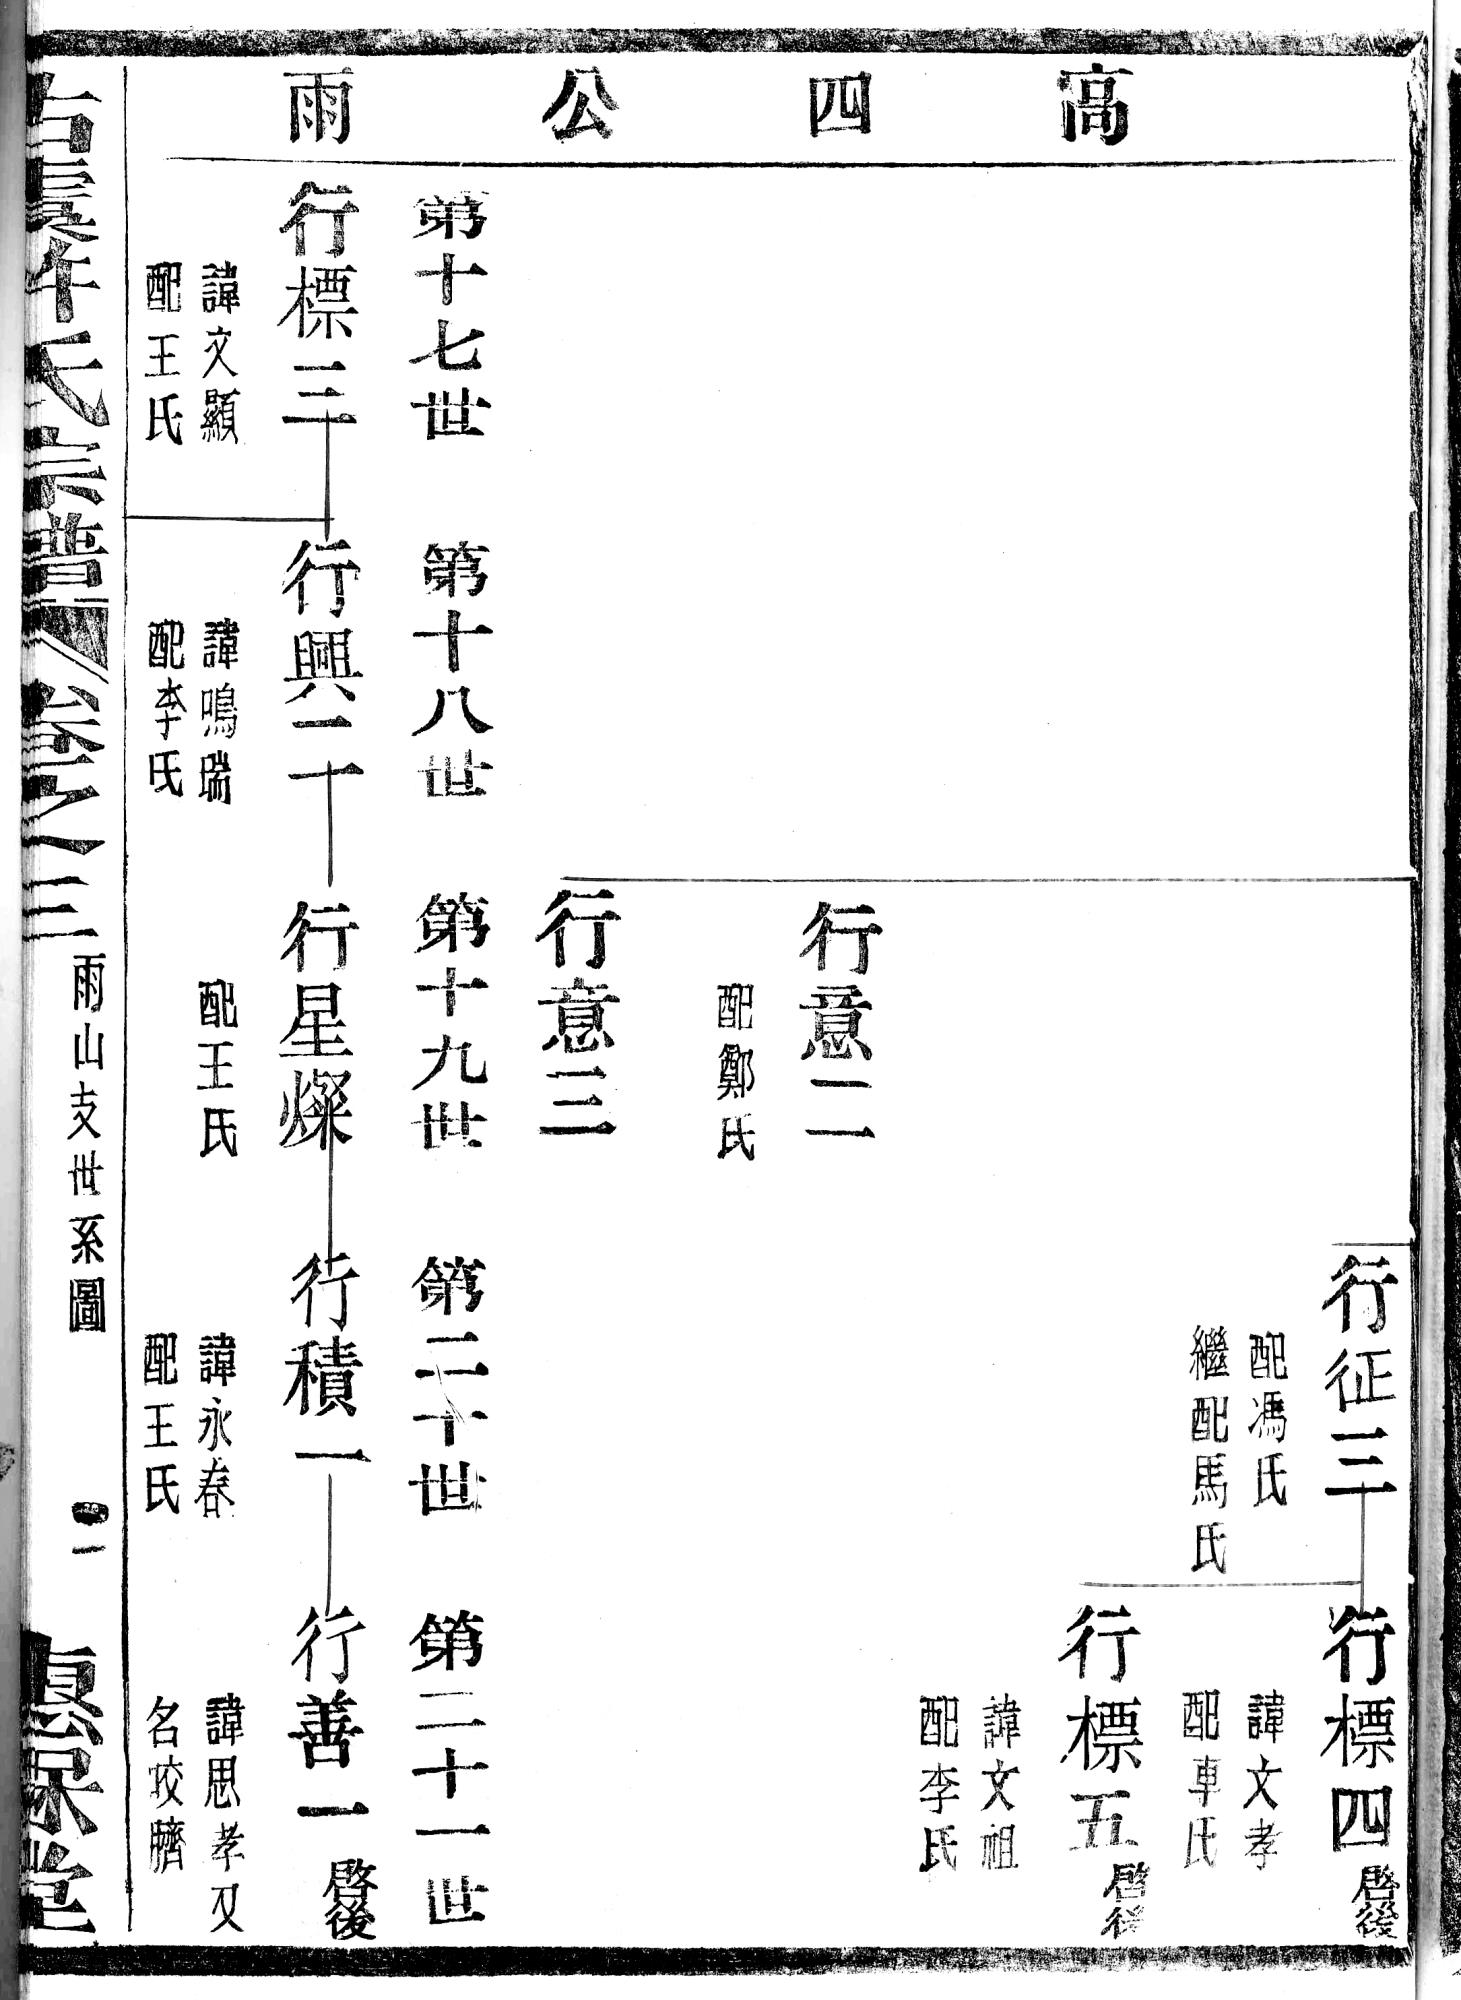 高四公雨
行征三
配馮氏
繼配馬氏
行標四 啓後
諱文孝
配車氏
行標五 啓後
諱文祖
配李氏
行意二
配鄭氏
行意三
第十七世
第十八世
第十九世
第二十世
第二十一世
行標三
諱文顯
配王氏
行興二十
諱鳴瑞
配李氏
行星燦
配王氏
行積一
諱永春
配王氏
行善一 啓後
諱思孝又
名咬臍
古虞許氏宗譜 卷之三 雨山支世系圖